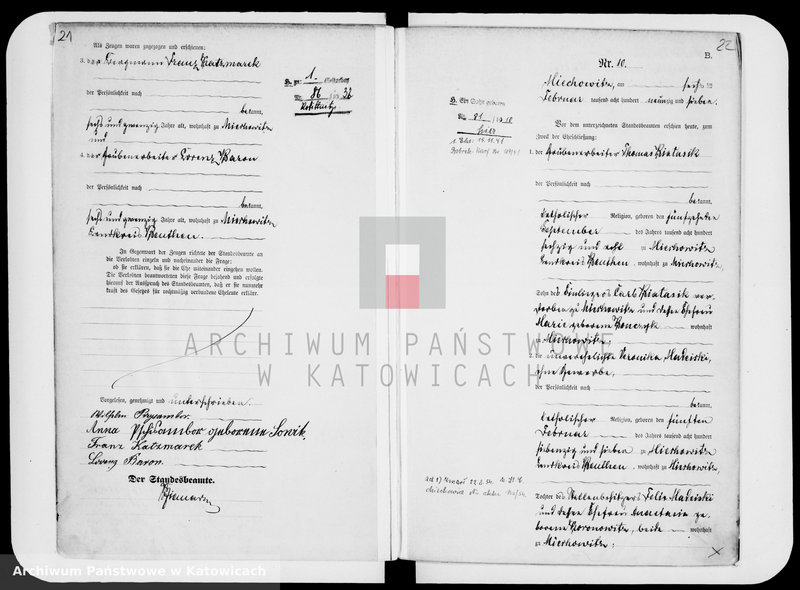 21
Als Zeugen waren zugezogen und erschienen:
3. der Bergmann Franz Katzmarek
der Persönlichkeit nach
bekannt,
sechs und zwanzig Jahre alt, wohnhaft zu Miechowitz
und
4. der Grubenarbeiter Lorenz Baron
der Persönlichkeit nach
bekannt,
sechs und zwanzig Jahre alt, wohnhaft zu Miechowitz
Landkreis Beuthen.
In Gegenwart der Zeugen richtete der Standesbeamte an
die Verlobten einzeln und nacheinander die Frage:
ob sie erklären, daß sie die Ehe miteinander eingehen wollen.
Die Verlobten beantworteten diese Frage bejahend und erfolgte
hierauf der Ausspruch des Standesbeamten, daß er sie nunmehr
kraft des Gesetzes für rechtmäßig verbundene Eheleute erkläre.
Vorgelesen, genehmigt und unterschrieben.
Wilhelm
Anna geborene Sowik.
Franz Katzmarek
Lorenz Baron.
Der Standesbeamte.
1.
Nr. 86 32
Rokittnitz
22
B.
Nr. 10.
Miechowitz, am sechs ten
Februar tausend acht hundert neunzig und sieben.
Vor dem unterzeichneten Standesbeamten erschienen heute, zum
Zweck der Eheschließung:
1. der Grubenarbeiter Thomas Kiatasik
der Persönlichkeit nach
bekannt,
katholischer Religion, geboren den fünfzehnten
September des Jahres tausend acht hundert
sechzig und acht zu Miechowitz
Landkreis Beuthen, wohnhaft zu Miechowitz,
Sohn des Einliegers Carl Kiatasik ver-
storben zu Miechowitz und dessen Ehefrau
Marie geborene wohnhaft
Miechowitz;
2. die unverehelichte Veronika Madeiski,
ohne Gewerbe,
der Persönlichkeit nach
bekannt,
katholischer Religion, geboren den fünften
Februar des Jahres tausend acht hundert
siebenzig und sieben zu Miechowitz
Landkreis Beuthen, wohnhaft zu Miechowitz,
Tochter des Stellenbesitzers Felix Madeiski
und dessen Ehefrau Anastasia ge-
borene Koronowitz, beide wohnhaft
zu Miechowitz;
Ein Sohn geboren
Nr. 81
ARCHIWUM PAŃSTWOWE
W KATOWICACH
Archiwum Państwowe w Katowicach